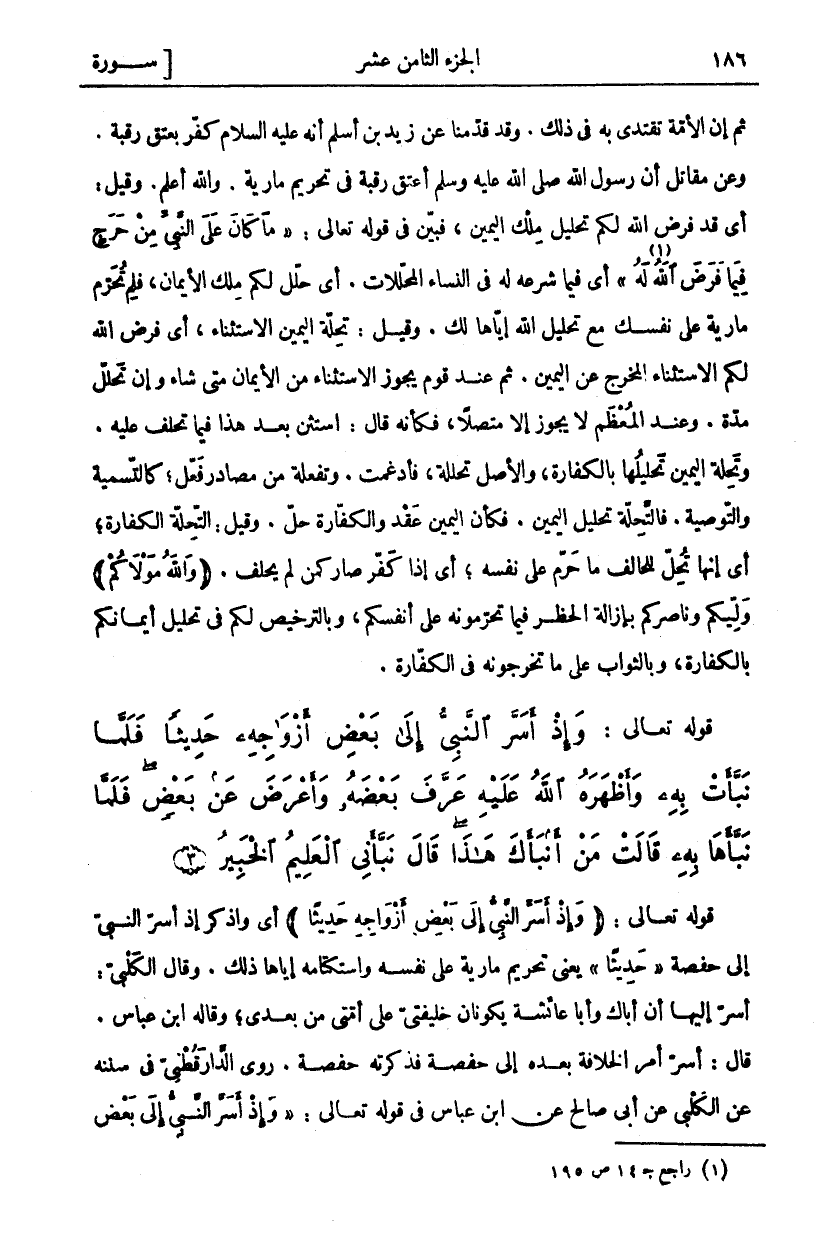 ١٨٦ الجزء الثامن عشر [ ســورة
ثم إن الأمة تقتدى به فى ذلك . وقد قدّمنا عن زيد بن أسلم أنه عليه السلام كفّر بعتق رقبة .
وعن مقاتل أن رسول الله صلى الله عليه وسلم أعتق رقبة فى تحريم مارية . والله أعلم. وقيل :
أى قد فرض الله لكم تحليل مِلْك اليمين ، فبيّن فى قوله تعالى : « مَا كَانَ عَلَى النَّبِيِّ مِنْ حَرَجٍ
فِيمَا فَرَضَ اللهُ لَهُ (١) » أى فيما شرعه له فى النساء المحلّلات . أى حلّل لكم مِلك الأيمان، فلِم تُحَرِّم
مارية على نفسـك مع تحليل الله إيّاها لك . وقيـل : تحِلّة اليمين الاستثناء ، أى فرض الله
لكم الاستثناء المخرج عن اليمين . ثم عنـد قوم يجوز الاستثناء من الأيمان متى شاء وإن تحلّل
مدّة . وعنـد المُعْظَم لا يجوز إلا متصلًا، فكأنه قال : استثن بعـد هذا فيما تحلف عليه .
وتَحِلة اليمين تحليلُها بالكفارة، والأصل تحللة، فأدغمت . وتفعلة من مصادر فَعّل ؛ كالتّسمية
والتّوصية . فالتَّحِلّة تحليل اليمين . فكأن اليمين عَقْد والكفّارة حلّ . وقيل : التّحِلّة الكفارة ؛
أى إنها تُحِلّ للحالف ما حَرّم على نفسه ؛ أى إذا كَفّر صار كمن لم يحلف . ﴿ وَاللهُ مَوْلَاكُمْ ﴾
وَلِيّكم وناصركم بإزالة الحظـر فيما تحرّمونه على أنفسكم ، وبالترخيص لكم فى تحليل أيمـانكم
بالكفارة، وبالثواب على ما تخرجونه فى الكفّارة .
قوله تعـالى : وَإِذْ أَسَرَّ ٱلنَّبِيُّ إِلَىٰ بَعْضِ أَزْوَٰجِهِۦ حَدِيثًا فَلَمَّا
نَبَّأَتْ بِهِۦ وَأَظْهَرَهُ ٱللَّهُ عَلَيْهِ عَرَّفَ بَعْضَهُۥ وَأَعْرَضَ عَنۢ بَعْضٍ ۖ فَلَمَّا
نَبَّأَهَا بِهِۦ قَالَتْ مَنْ أَنۢبَأَكَ هَٰذَا ۖ قَالَ نَبَّأَنِىَ ٱلْعَلِيمُ ٱلْخَبِيرُ ﴿٣﴾
قوله تعـالى : ﴿ وَإِذْ أَسَرَّ النَّبِيُّ إِلَى بَعْضِ أَزْوَاجِهِ حَدِيثًا ﴾ أى واذكر إذ أسرّ النـبيّ
إلى حفصة « حَدِيثًا » يعنى تحريم مارية على نفسـه واستكتامه إياها ذلك . وقال الكَلْبيّ :
أسرّ إليهـا أن أباك وأبا عائشـة يكونان خليفتىّ على أمّتى من بعـدى ؛ وقاله ابن عباس .
قال : أسرّ أمر الخلافة بعده إلى حفصـة فذكرته حفصـة . روى الدَّارَقُطْنِيّ فى سننه
عن الكَلْبي عن أبى صالح عن ابن عباس فى قوله تعـالى : « وَإِذْ أَسَرَّ النَّبِيُّ إِلَى بَعْضِ
(١) راجع جـ ١٤ ص ١٩٥